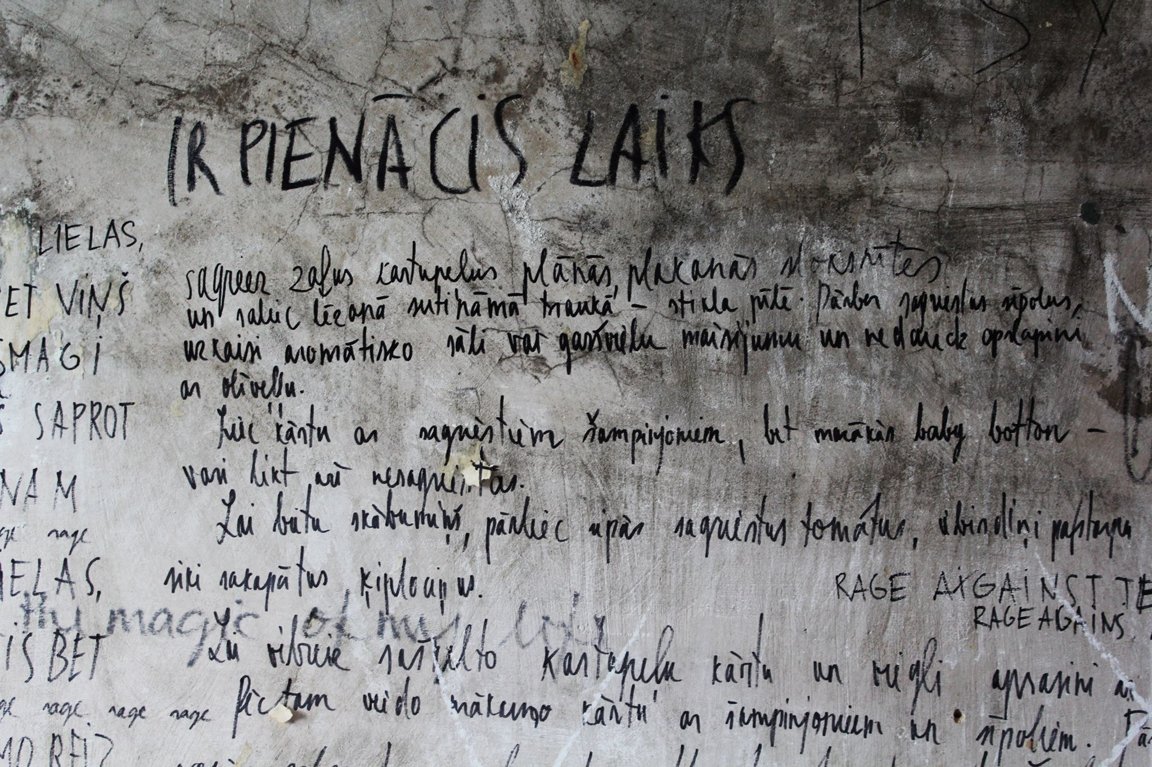 IR PIENĀCIS LAIKS
LIELAS,
ET VIŅŠ
SMAGI
SAPROT
NAM
rage
IELAS,
IS BET
rage rage rage
sagriez zaļus kartupeļus plānās, plakanās
un saliec lēzenā sutināmā traukā – stikla Pārber sagrieztus sīpolus,
uzkaisi aromātisko sāli vai garšvielu maisījumu un nedaudz apslapini
ar olīveļļu.
Liec kārtu ar sagrieztiem šampinjoniem, bet mazākās baby botton –
vari likt arī nesagrieztas.
Lai būtu skābumiņš, pārliec ripās sagrieztus tomātus,
sīki sakapātus ķiplociņus.
RAGE AGAINST TE
RAGE AGAINS
thi magic of
Lai kartupeļu kārtu un viegli aprasini ar
Pēctam veido nākamo kārtu ar šampinjoniem un sīpoliem.